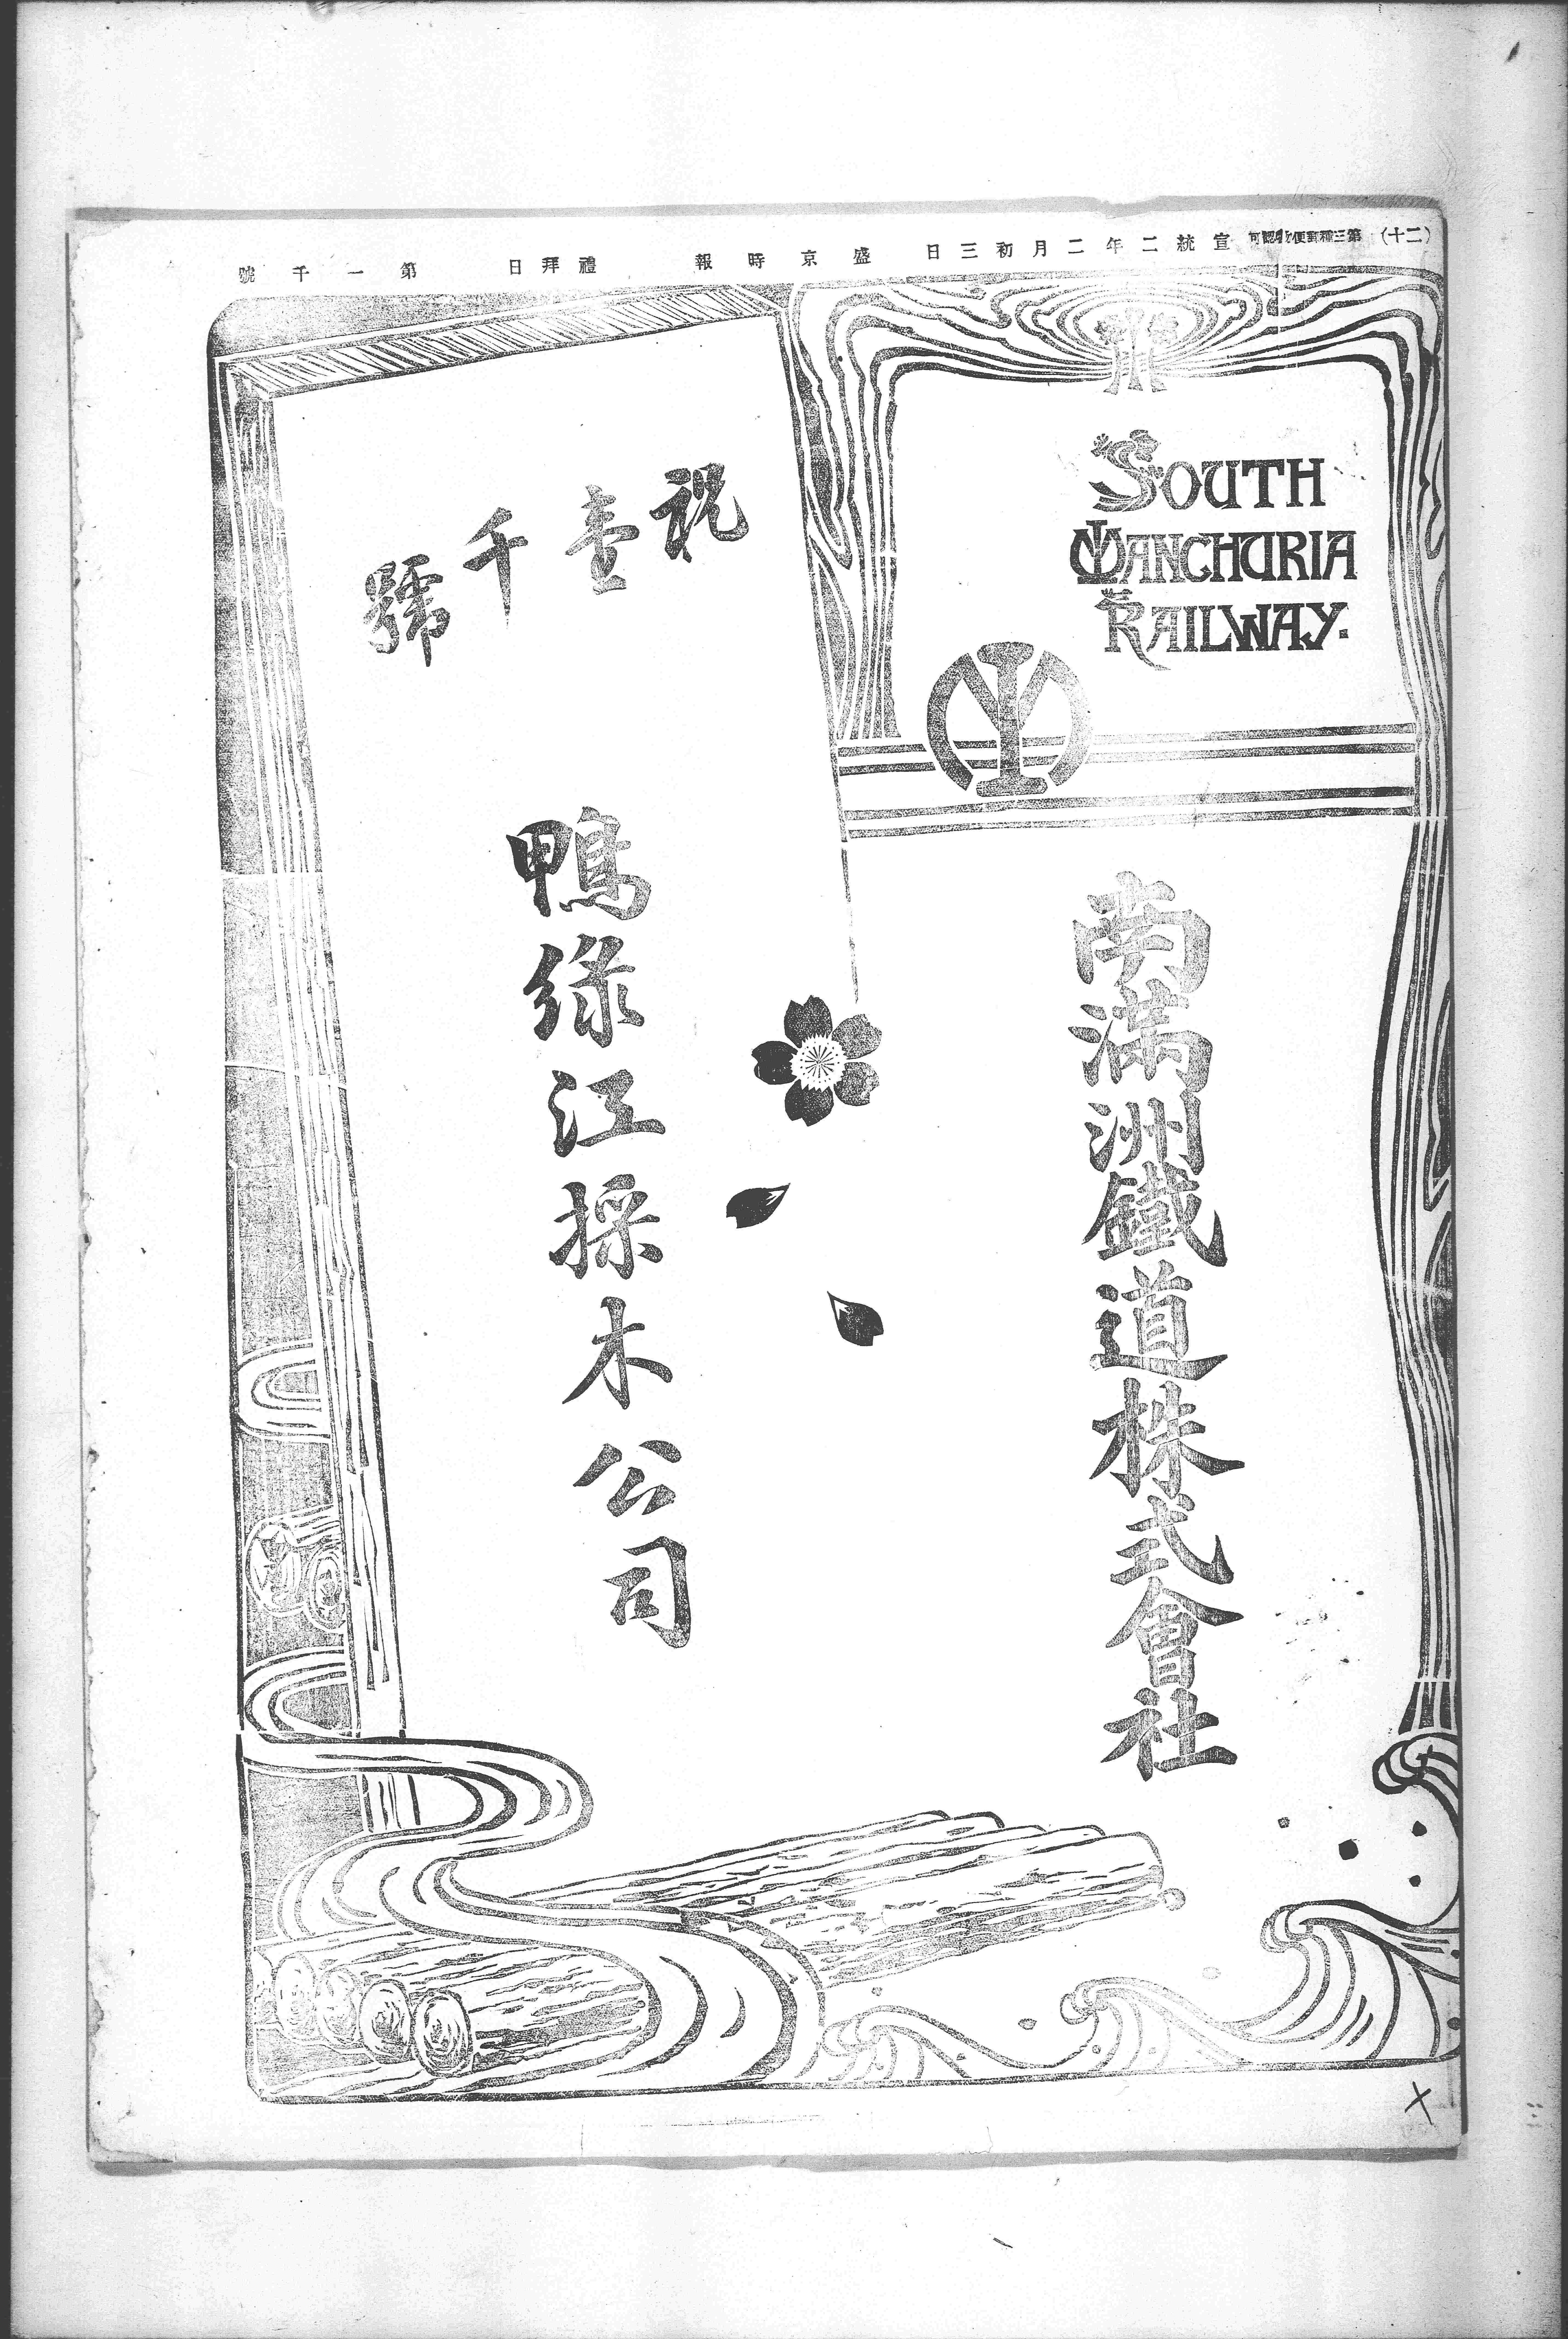 (二十) 第三種郵便物認可 宣統二年二月初三日 盛京時報 禮拜日 第一千號
SOUTH
MANCHURIA
RAILWAY.
南滿洲鐵道株式會社
祝壹千號
鴨綠江採木公司